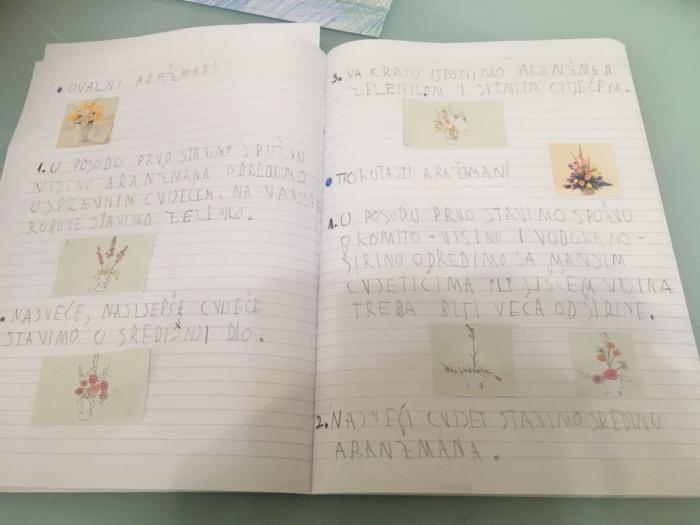 • OVALNI ARAŽMANI
1. U POSODU PRVO STAVIMO SPUŽVU
VISINU ARANŽMANA ODREDIMO
USPRAVNIM CVIJEĆEM, NA VANJSKE
RUBOVE STAVIMO ZELENILO.
• NAJVEĆE, NAJLJEPŠE CVIJEĆE
STAVIMO U SREDIŠNJI DIO.
3. NA KRAJU ISPUNIMO ARANŽMAN
ZELENILOM I SITNIM CVIJEĆEM.
• TROKUTASTI ARAŽMANI
1. U POSODU PRVO STAVIMO SPUŽVU
OKOMITO - VISINU I VODORAVNO -
ŠIRINU ODREDIMO SA MANJIM
CVJETIĆIMA ILI LIŠĆEM VISINA
TREBA BITI VEĆA OD ŠIRINE.
2. NAJVEĆI CVIJET STAVIMO SREDINU
ARANŽMANA.